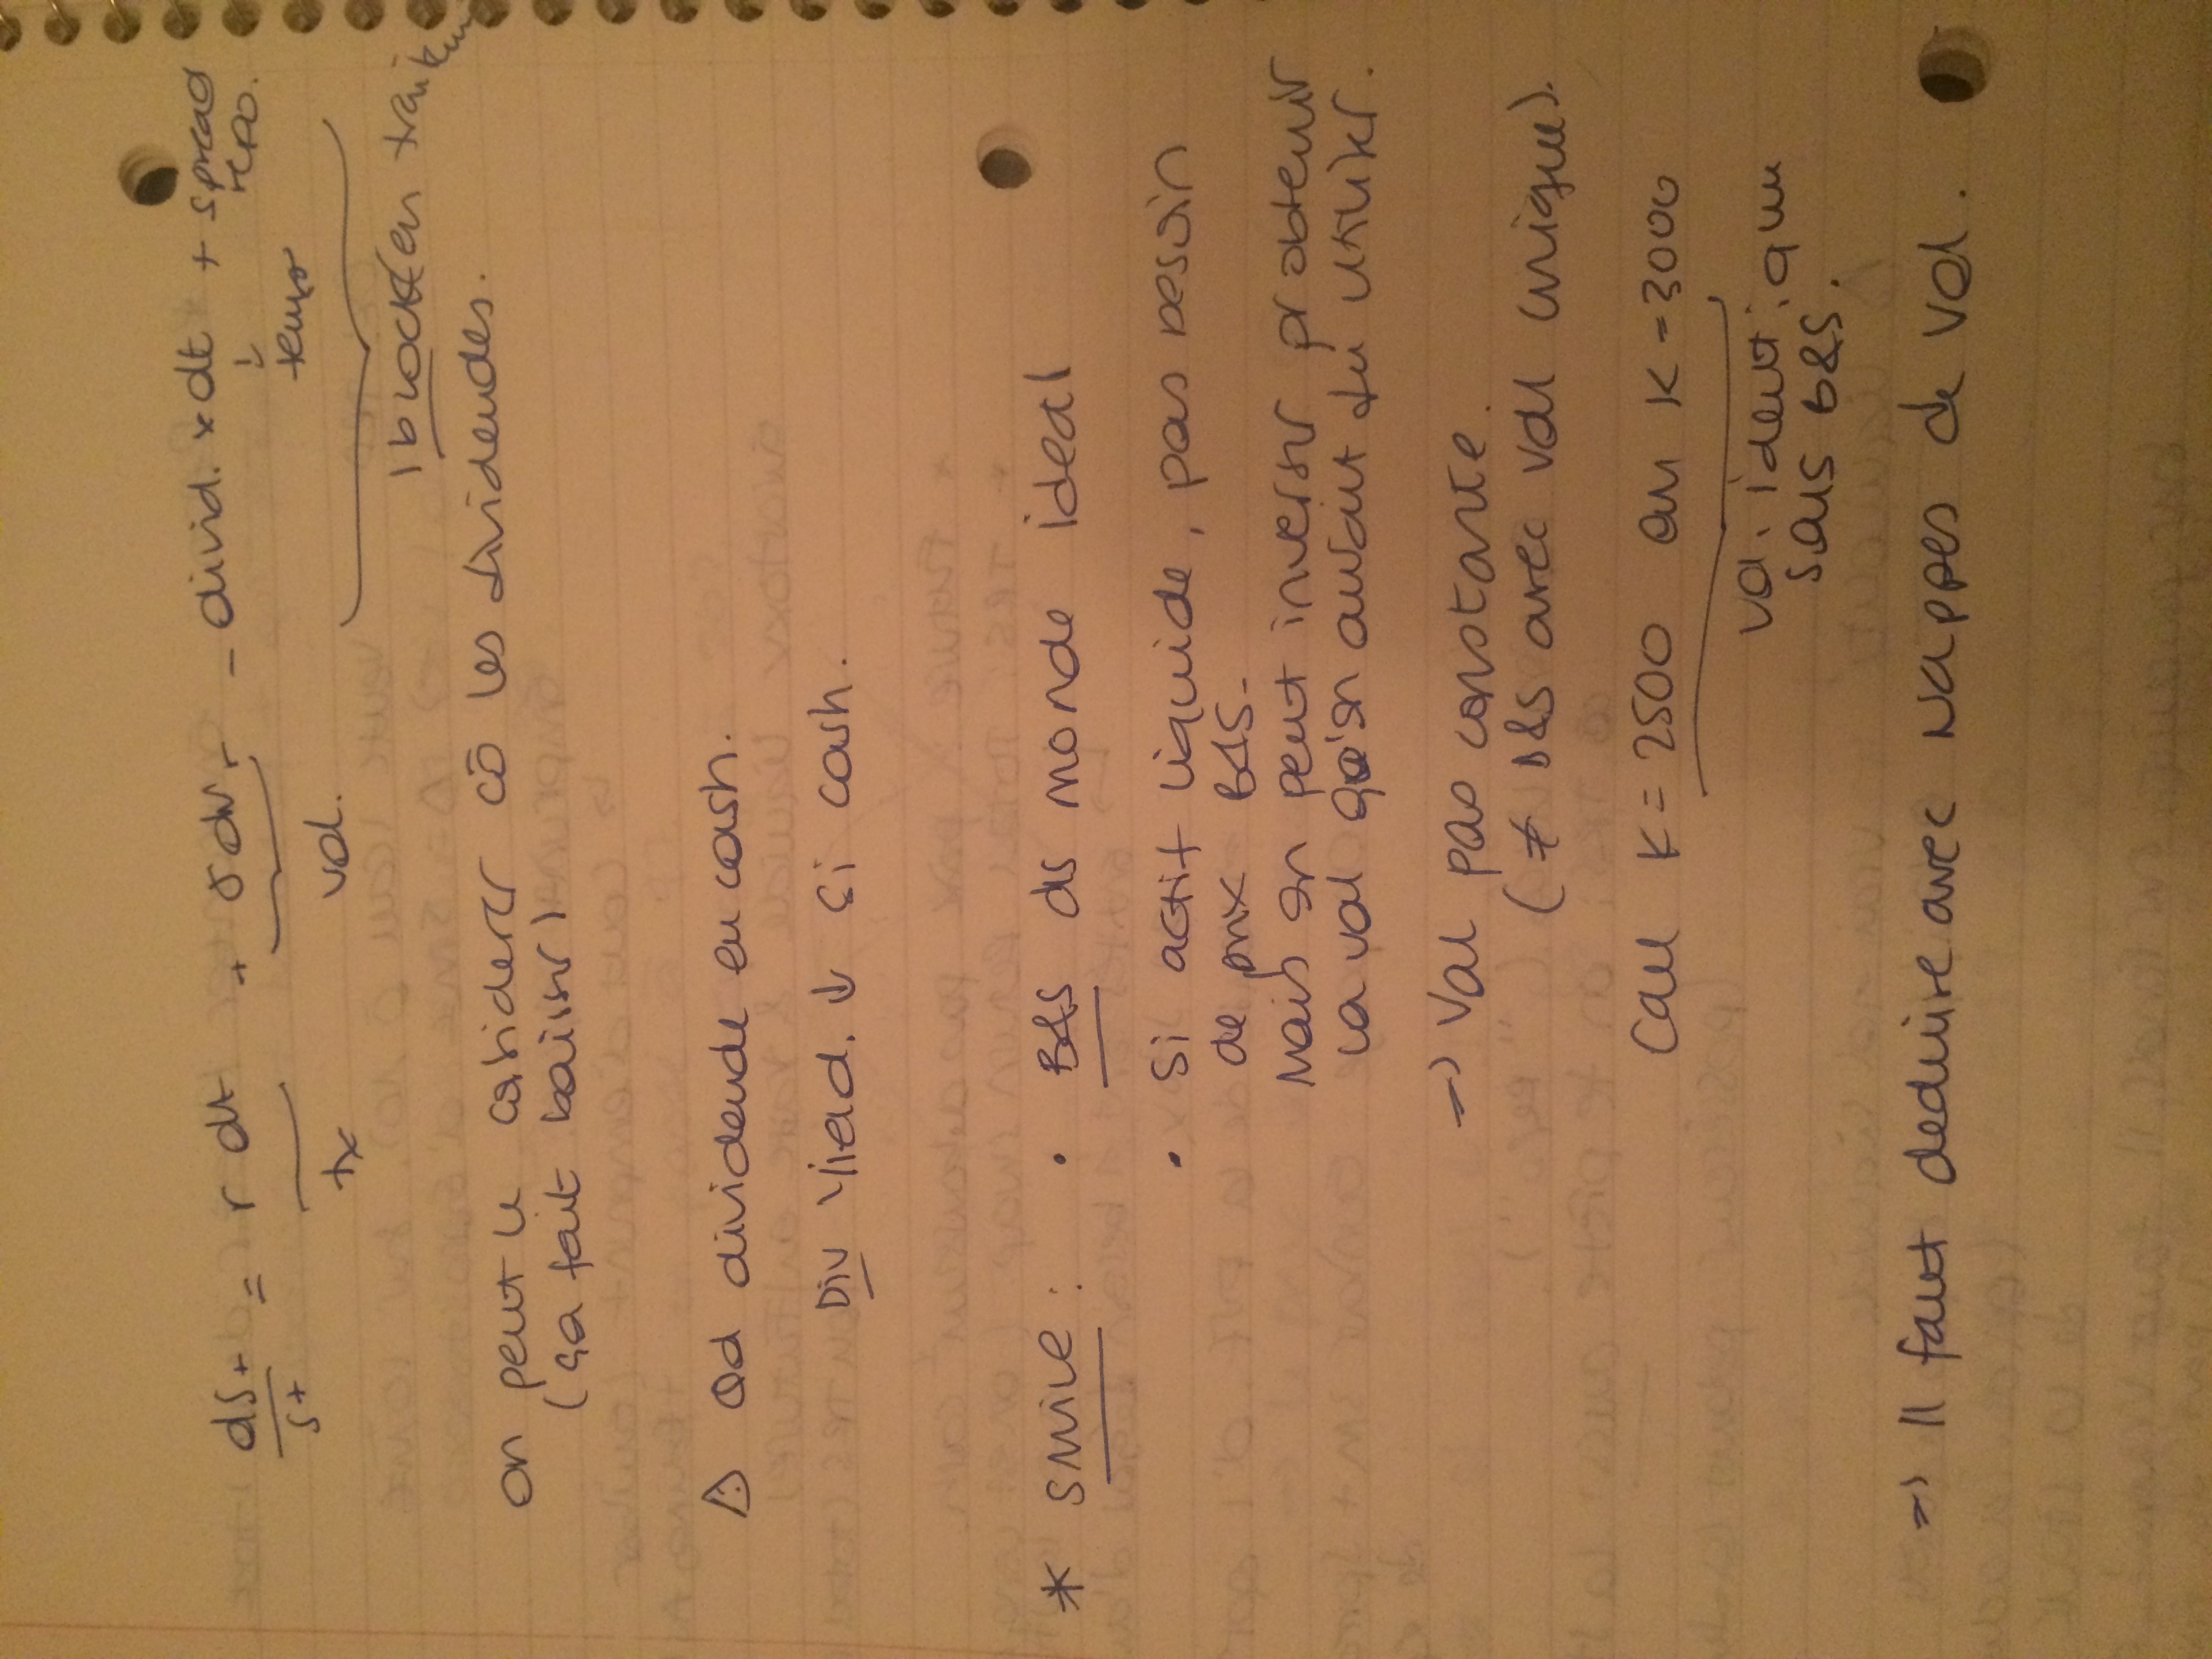 dSt = r dt + σ dWt - divid. x dt + spread
St repo.
tx vol. temps
1 block en traiteur
on peut le considerer cō les dividendes.
(ça fait baisser)
⚠ Qd dividende en cash.
Div Yield. ↓ si cash.
* SMILE : • B&S ds monde ideal
• Si actif liquide, pas besoin
de prix B&S.
Mais on peut inverser pr obtenir
la vol qu'on aurait du utiliser.
=> Vol pas constante.
(≠ B&S avec vol unique).
Call K = 2500 ou K = 3000
vol. identique
sous B&S.
=> Il faut deduire avec Nappes de Vol.